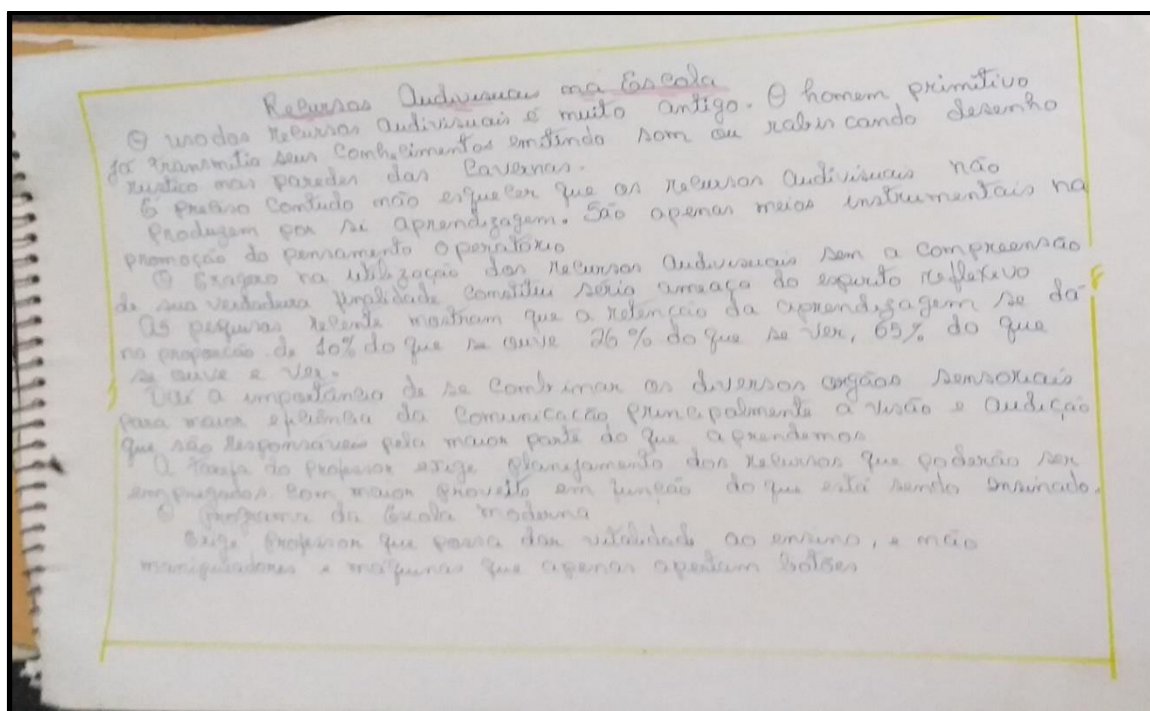 Recursos Audivisuais na Escola
O uso dos recursos audivisuais é muito antigo. O homem primitivo
já transmitia seus conhecimentos emitindo som ou rabiscando desenho
rustico nas paredes das Cavernas.
É preciso contudo não esquecer que os recursos audivisuais não
produzem por si aprendizagem. São apenas meios instrumentais na
promoção do pensamento operatório
O Exagero na utilização dos recursos audivisuais sem a compreensão
de sua verdadeira finalidade constitui séria ameaça do espirito reflexivo
As pesquisas recente mostriam que a retenção da aprendizagem se dá
na proporção de 10% do que se ouve 26% do que se ver, 65% do que
se ouve e ver.
Daí a importância de se combrimar os diversos orgãos sensoriais
para maior eficiência da Comunicação principalmente a visão e audição
que são responsáveis pela maior parte do que aprendemos
A tarefa do professor exige planejamento dos recursos que poderão ser
empregados com maior proveito em função do que está sendo ensinado.
O programa da Escola moderna
Exige professor que possa dar vitalidade ao ensino, e não
manipuladores e máquinas que apenas apertam botões